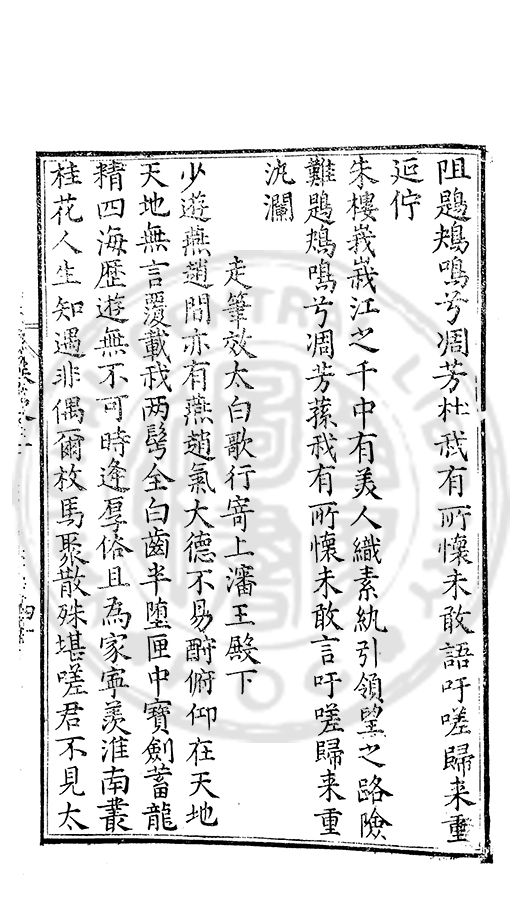 阻鶗鴂鳴兮凋芳杜我有所懷未敢語吁嗟歸来重
延佇
朱樓峩峩江之干中有美人織素紈引領望之路險
難鶗鴂鳴兮凋芳蓀我有所懷未敢言吁嗟歸来重
汍瀾
走筆效太白歌行寄上瀋王殿下
少遊燕趙間亦有燕趙氣大德不易酧俯仰在天地
天地無言覆載我两髩全白齒半堕匣中寶劍蓄龍
精四海歷遊無不可時逢厚俗且為家寧羡淮南叢
桂花人生知遇非偶爾枚馬聚散殊堪嗟君不見太